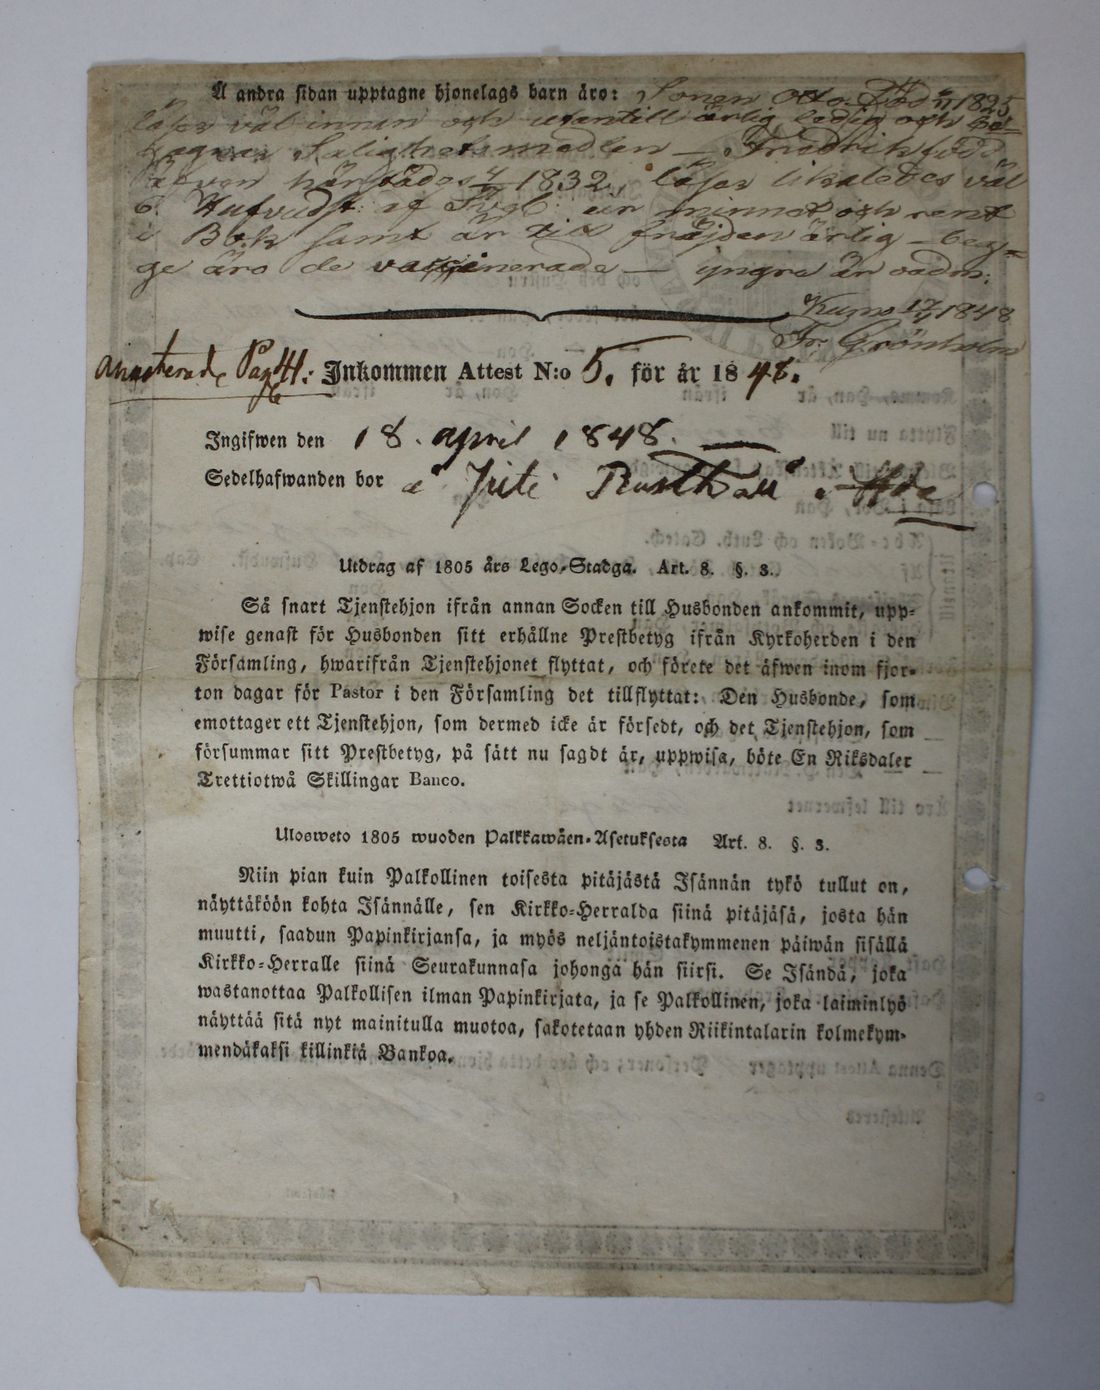 Å andra sidan upptagne hjonelags barn äro: Sonen Otto född 1835
läser väl innan och utantill ärlig ledig och
Salighetsmedlen — Fredrik född
även härstädes 1832, läser likaledes väl
Hufvudst: af minnet och rent
i Bok samt är till fräjden ärlig — beg-
ge äro de vaccinerade — yngre än
Kumo 17/4 1848
Fr. Grönholm
Pag Inkommen Attest N:o 5. för år 1848.
Ingifwen den 18. april 1848.
Sedelhafwanden bor å
Utdrag af 1805 års Lego-Stadga. Art. 8. §. 3.
Så snart Tjenstehjon ifrån annan Socken till Husbonden ankommit, upp-
wise genast för Husbonden sitt erhållne Prestbetyg ifrån Kyrkoherden i den
Församling, hwarifrån Tjenstehjonet flyttat, och förete det äfwen inom fjor-
ton dagar för Pastor i den Församling det tillflyttat: Den Husbonde, som
emottager ett Tjenstehjon, som dermed icke är försedt, och det Tjenstehjon, som
försummar sitt Prestbetyg, på sätt nu sagdt är, uppwisa, böte En Riksdaler
Trettiotwå Skillingar Banco.
Ulosweto 1805 wuoden Palkkawäen-Asetuksesta Art. 8. §. 3.
Niin pian kuin Palkollinen toisesta pitäjästä Isännän tykö tullut on,
näyttäköön kohta Isännälle, sen Kirkko-Herralda siinä pitäjäsä, josta hän
muutti, saadun Papinkirjansa, ja myös neljäntoistakymmenen päiwän sisällä
Kirkko-Herralle siinä Seurakunnasa johonga hän siirsi. Se Isändä, joka
wastanottaa Palkollisen ilman Papinkirjata, ja se Palkollinen, joka laiminlyö
näyttää sitä nyt mainitulla muotoa, sakotetaan yhden Riikintalarin kolmekym-
mendäkaksi killinkiä Bankoa.